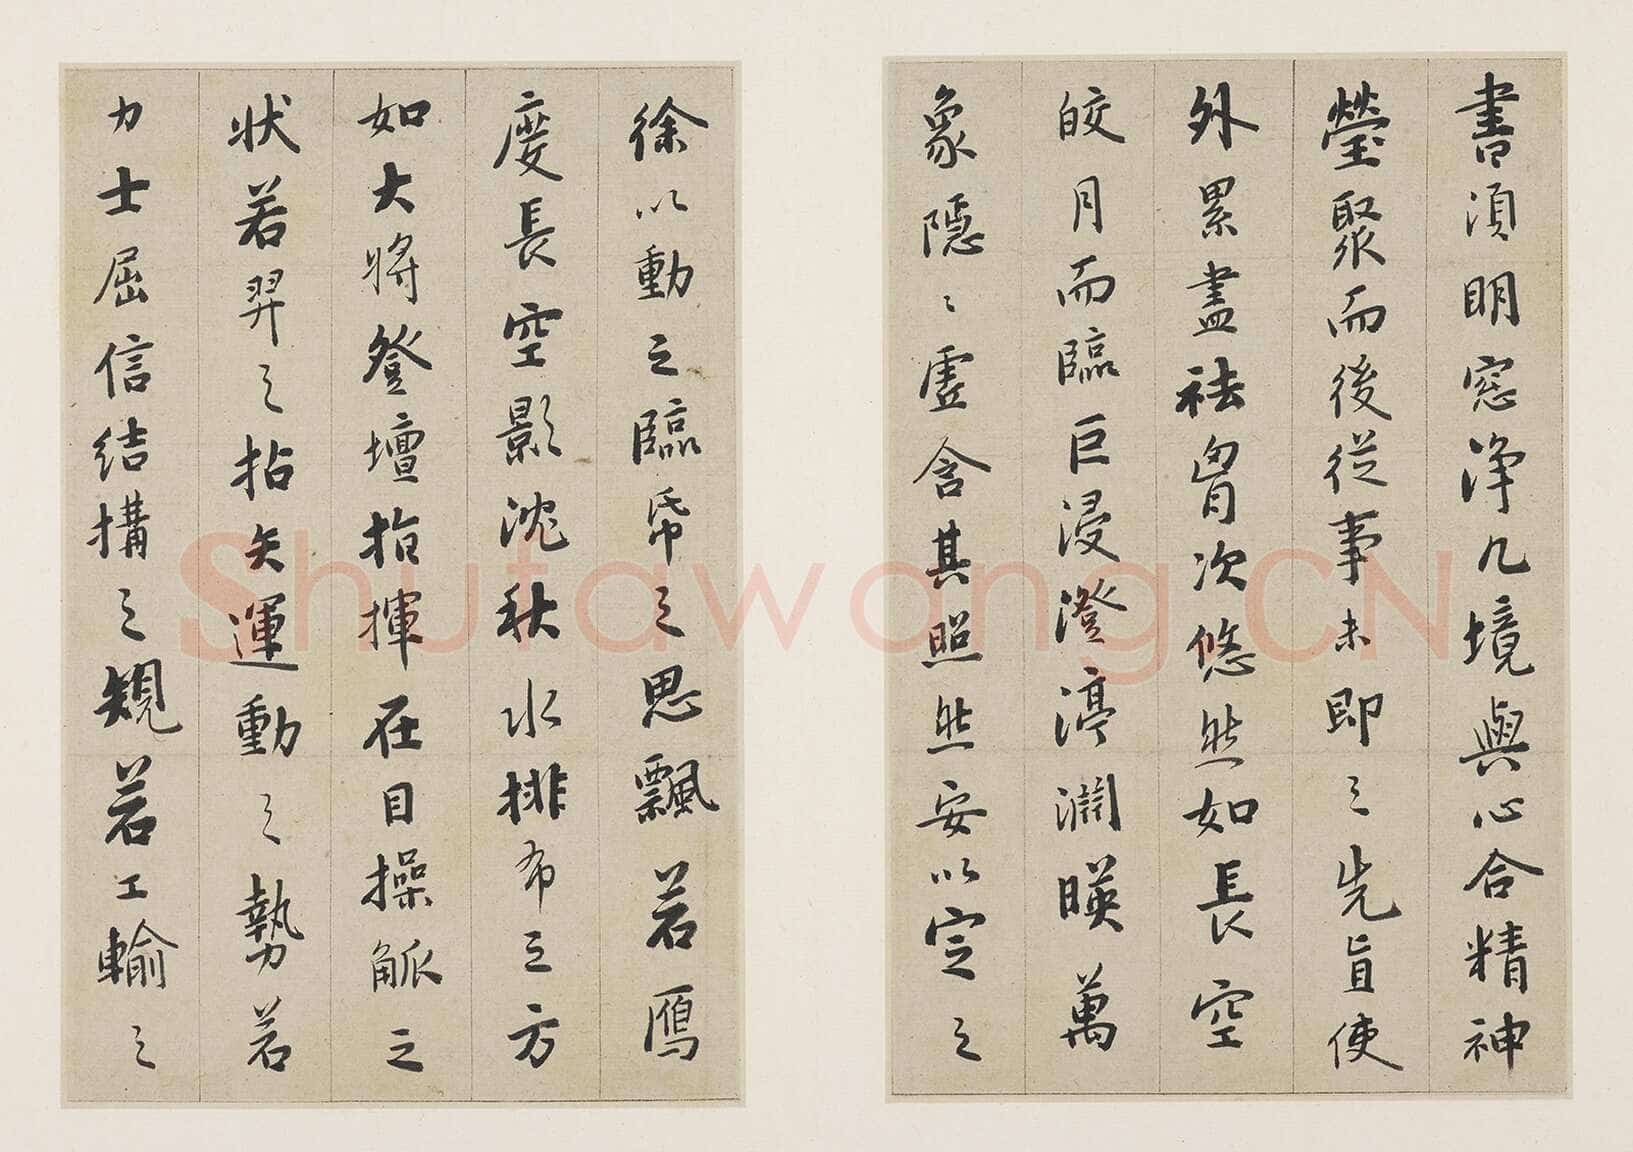 書須明窓淨几境與心合精神
瑩聚而後従事未即之先眞使
外累盡袪胷次悠然如長空
皎月而臨巨浸澄渟潤暎萬
象隱〻虛含其照然安以定之
徐以動之臨帋之思飄若鴈
度長空影沈秋水排布之方
如大將登壇指揮在目操觚之
状若羿之拈矢運動之勢若
力士屈信結構之規若工輸之
Shufawang.CN